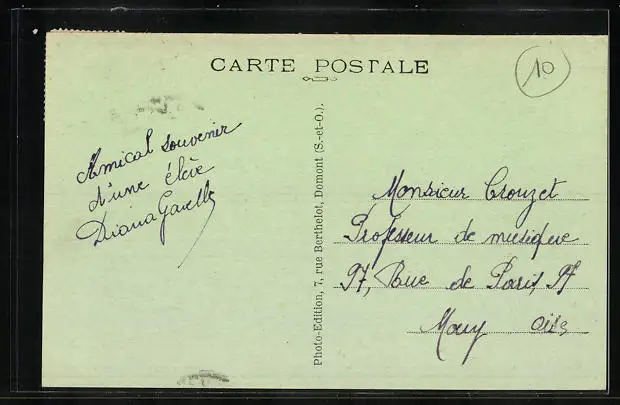 CARTE POSTALE
10
Amical souvenir
d'une élève
Diana
Photo-Edition, 7, rue Berthelot, Domont (S.-et-O.).
Monsieur Crouzet
Professeur de musique
97, Rue de Paris, 97
Mouy Oise